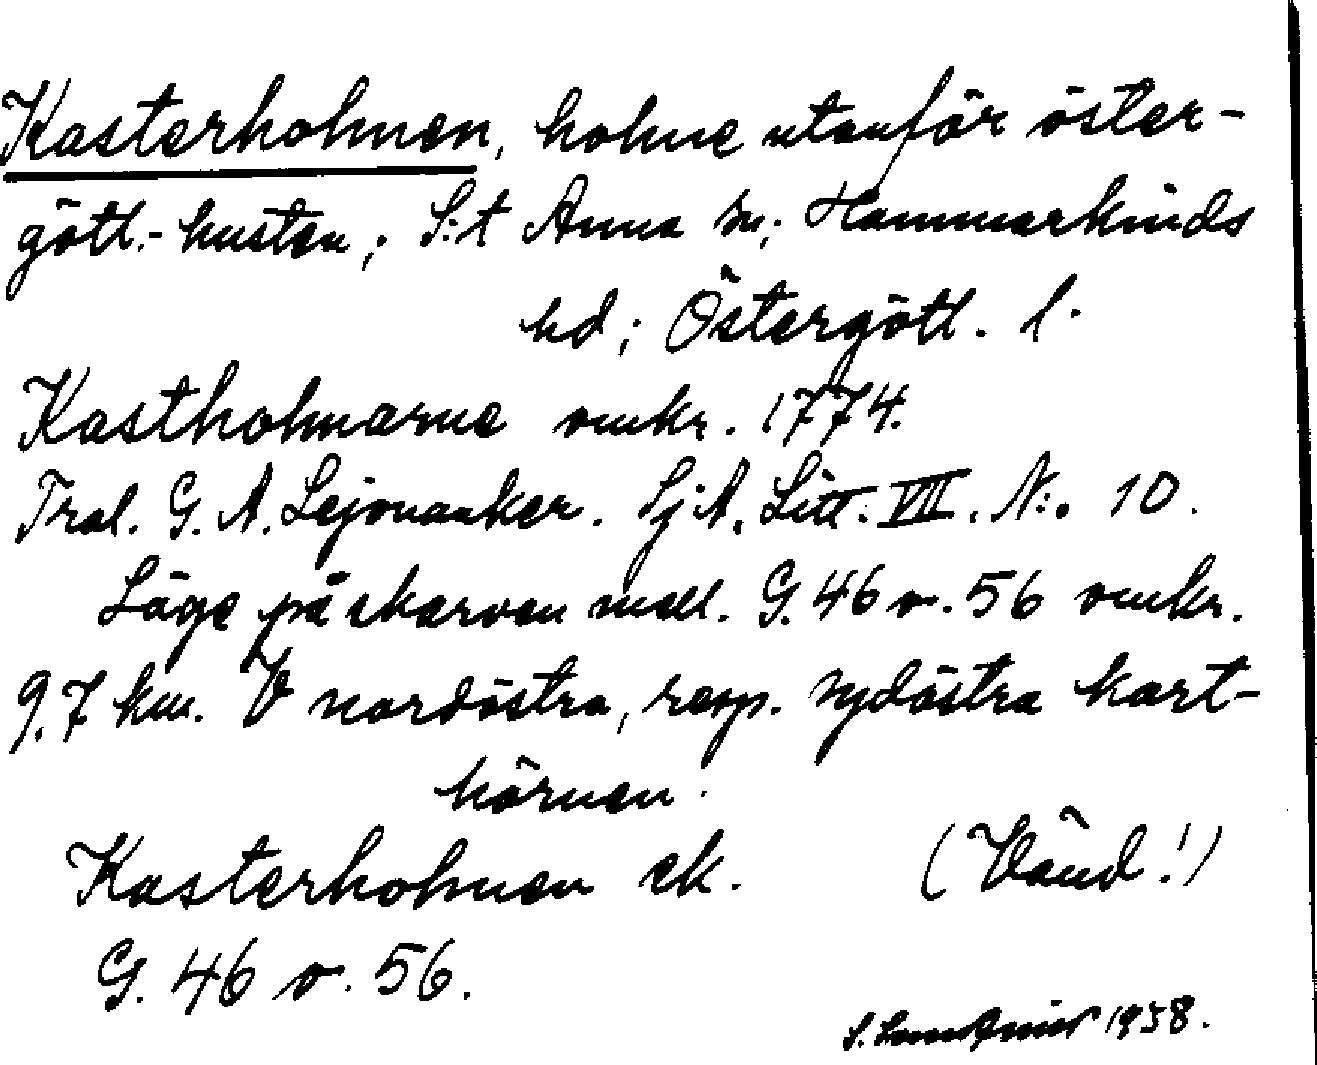 Kasterholmen, holme utanför öster-
götl.-kusten; S:t Anna sn; Hammarkinds
hd; Östergötl. l.
Kastholmarne omkr. 1774.
Tral. G. A. Lejonanker. SjA. Litt. VII. N:o 10.
Läge på skarven mell. G. 46 o. 56 omkr.
9.7 km. V nordöstra, resp. sydöstra kart-
hörnen.
Kasterholmen ek. (Vänd!)
G. 46 o. 56.
S. 1958.